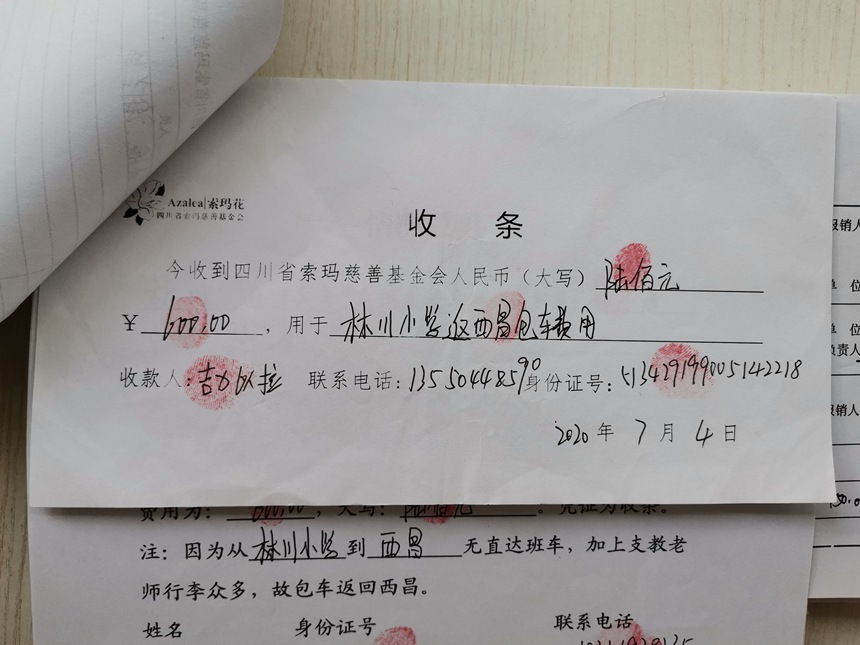 Azalea|索玛花
四川省索玛慈善基金会
收 条
今收到四川省索玛慈善基金会人民币（大写）陆佰元
¥ 600.00 ，用于 林川小学返西昌包车费用
收款人：吉 以拉 联系电话：13550448590 身份证号：513429199005142218
2020 年 7 月 4 日
费用为： 600.00 ，大写： 陆佰元 。凭证为收条。
注：因为从 林川小学 到 西昌 无直达班车，加上支教老
师行李众多，故包车返回西昌。
姓名 身份证号 联系电话
报销人
单 位
单 位
负责人
报销人